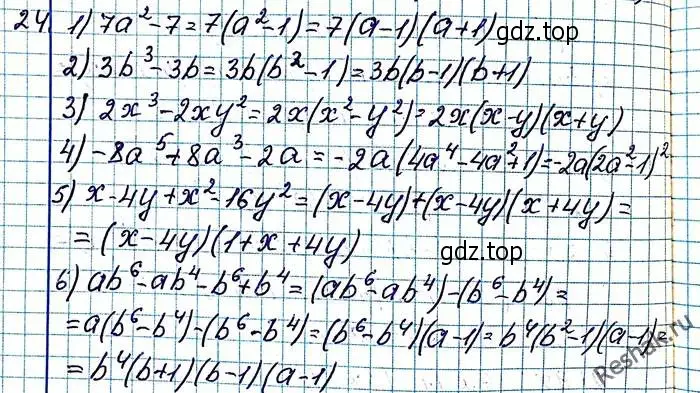 24 1) 7a² - 7 = 7(a² - 1) = 7(a - 1)(a + 1)
gdz.top
2) 3b³ - 3b = 3b(b² - 1) = 3b(b - 1)(b + 1)
3) 2x³ - 2xy² = 2x(x² - y²) = 2x(x - y)(x + y)
4) -8a⁵ + 8a³ - 2a = -2a(4a⁴ - 4a² + 1) = -2a(2a² - 1)²
5) x - 4y + x² - 16y² = (x - 4y) + (x - 4y)(x + 4y) =
= (x - 4y)(1 + x + 4y)
gdz.top
6) ab⁶ - ab⁴ - b⁶ + b⁴ = (ab⁶ - ab⁴) - (b⁶ - b⁴) =
= a(b⁶ - b⁴) - (b⁶ - b⁴) = (b⁶ - b⁴)(a - 1) = b⁴(b² - 1)(a - 1) =
= b⁴(b + 1)(b - 1)(a - 1)
Reshak.ru